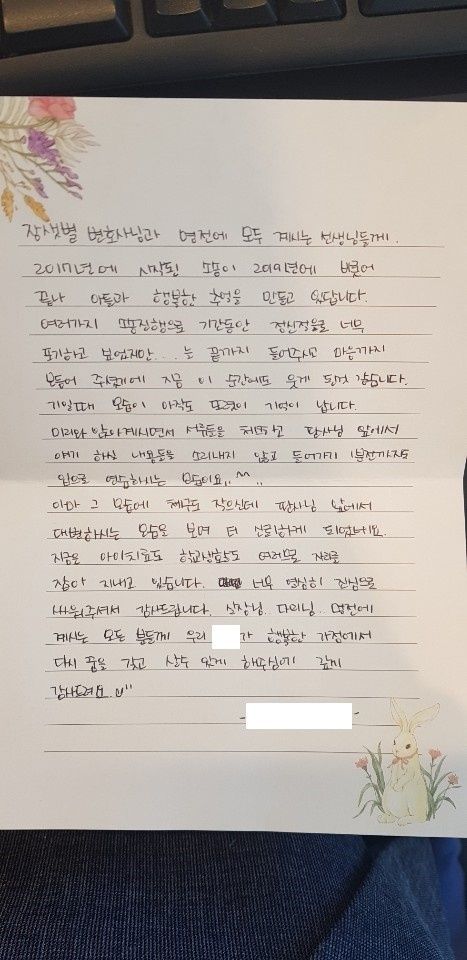 장샛별 변호사님과 명전에 모두 계시는 선생님들께.
2017년에 시작된 소송이 2019년에 비로소
끝나 아들과 행복한 추억을 만들고 있답니다.
여러가지 소송진행으로 기간동안 정신적으로 너무
포기하고 싶었지만... 는 끝까지 들어주시고 마음까지
보듬어 주셨기에 지금 이 순간에도 웃게 된것 같습니다.
기일때 모습이 아직도 또렷이 기억이 납니다.
미리와 앉아계시면서 서류들을 체크하고 판사님 앞에서
얘기 하실 내용들을 소리내지 않고 들어가기 1분전까지도
입으로 연습하시는 모습이요,, ^^ ,,
아마 그 모습에 체구도 작으신데 판사님 앞에서
대변하시는 모습을 보며 더 신뢰하게 되었네요.
지금은 아이치료도 학교생활도 여러모로 자리를
잡아 지내고 있습니다. 너무 열심히 진심으로
싸워주셔서 감사드립니다. 실장님. 다미님. 명전에
계시는 모든 분들께 우리 가 행복한 가정에서
다시 꿈을 갖고 살수 있게 해주심에 깊게
감사드려요